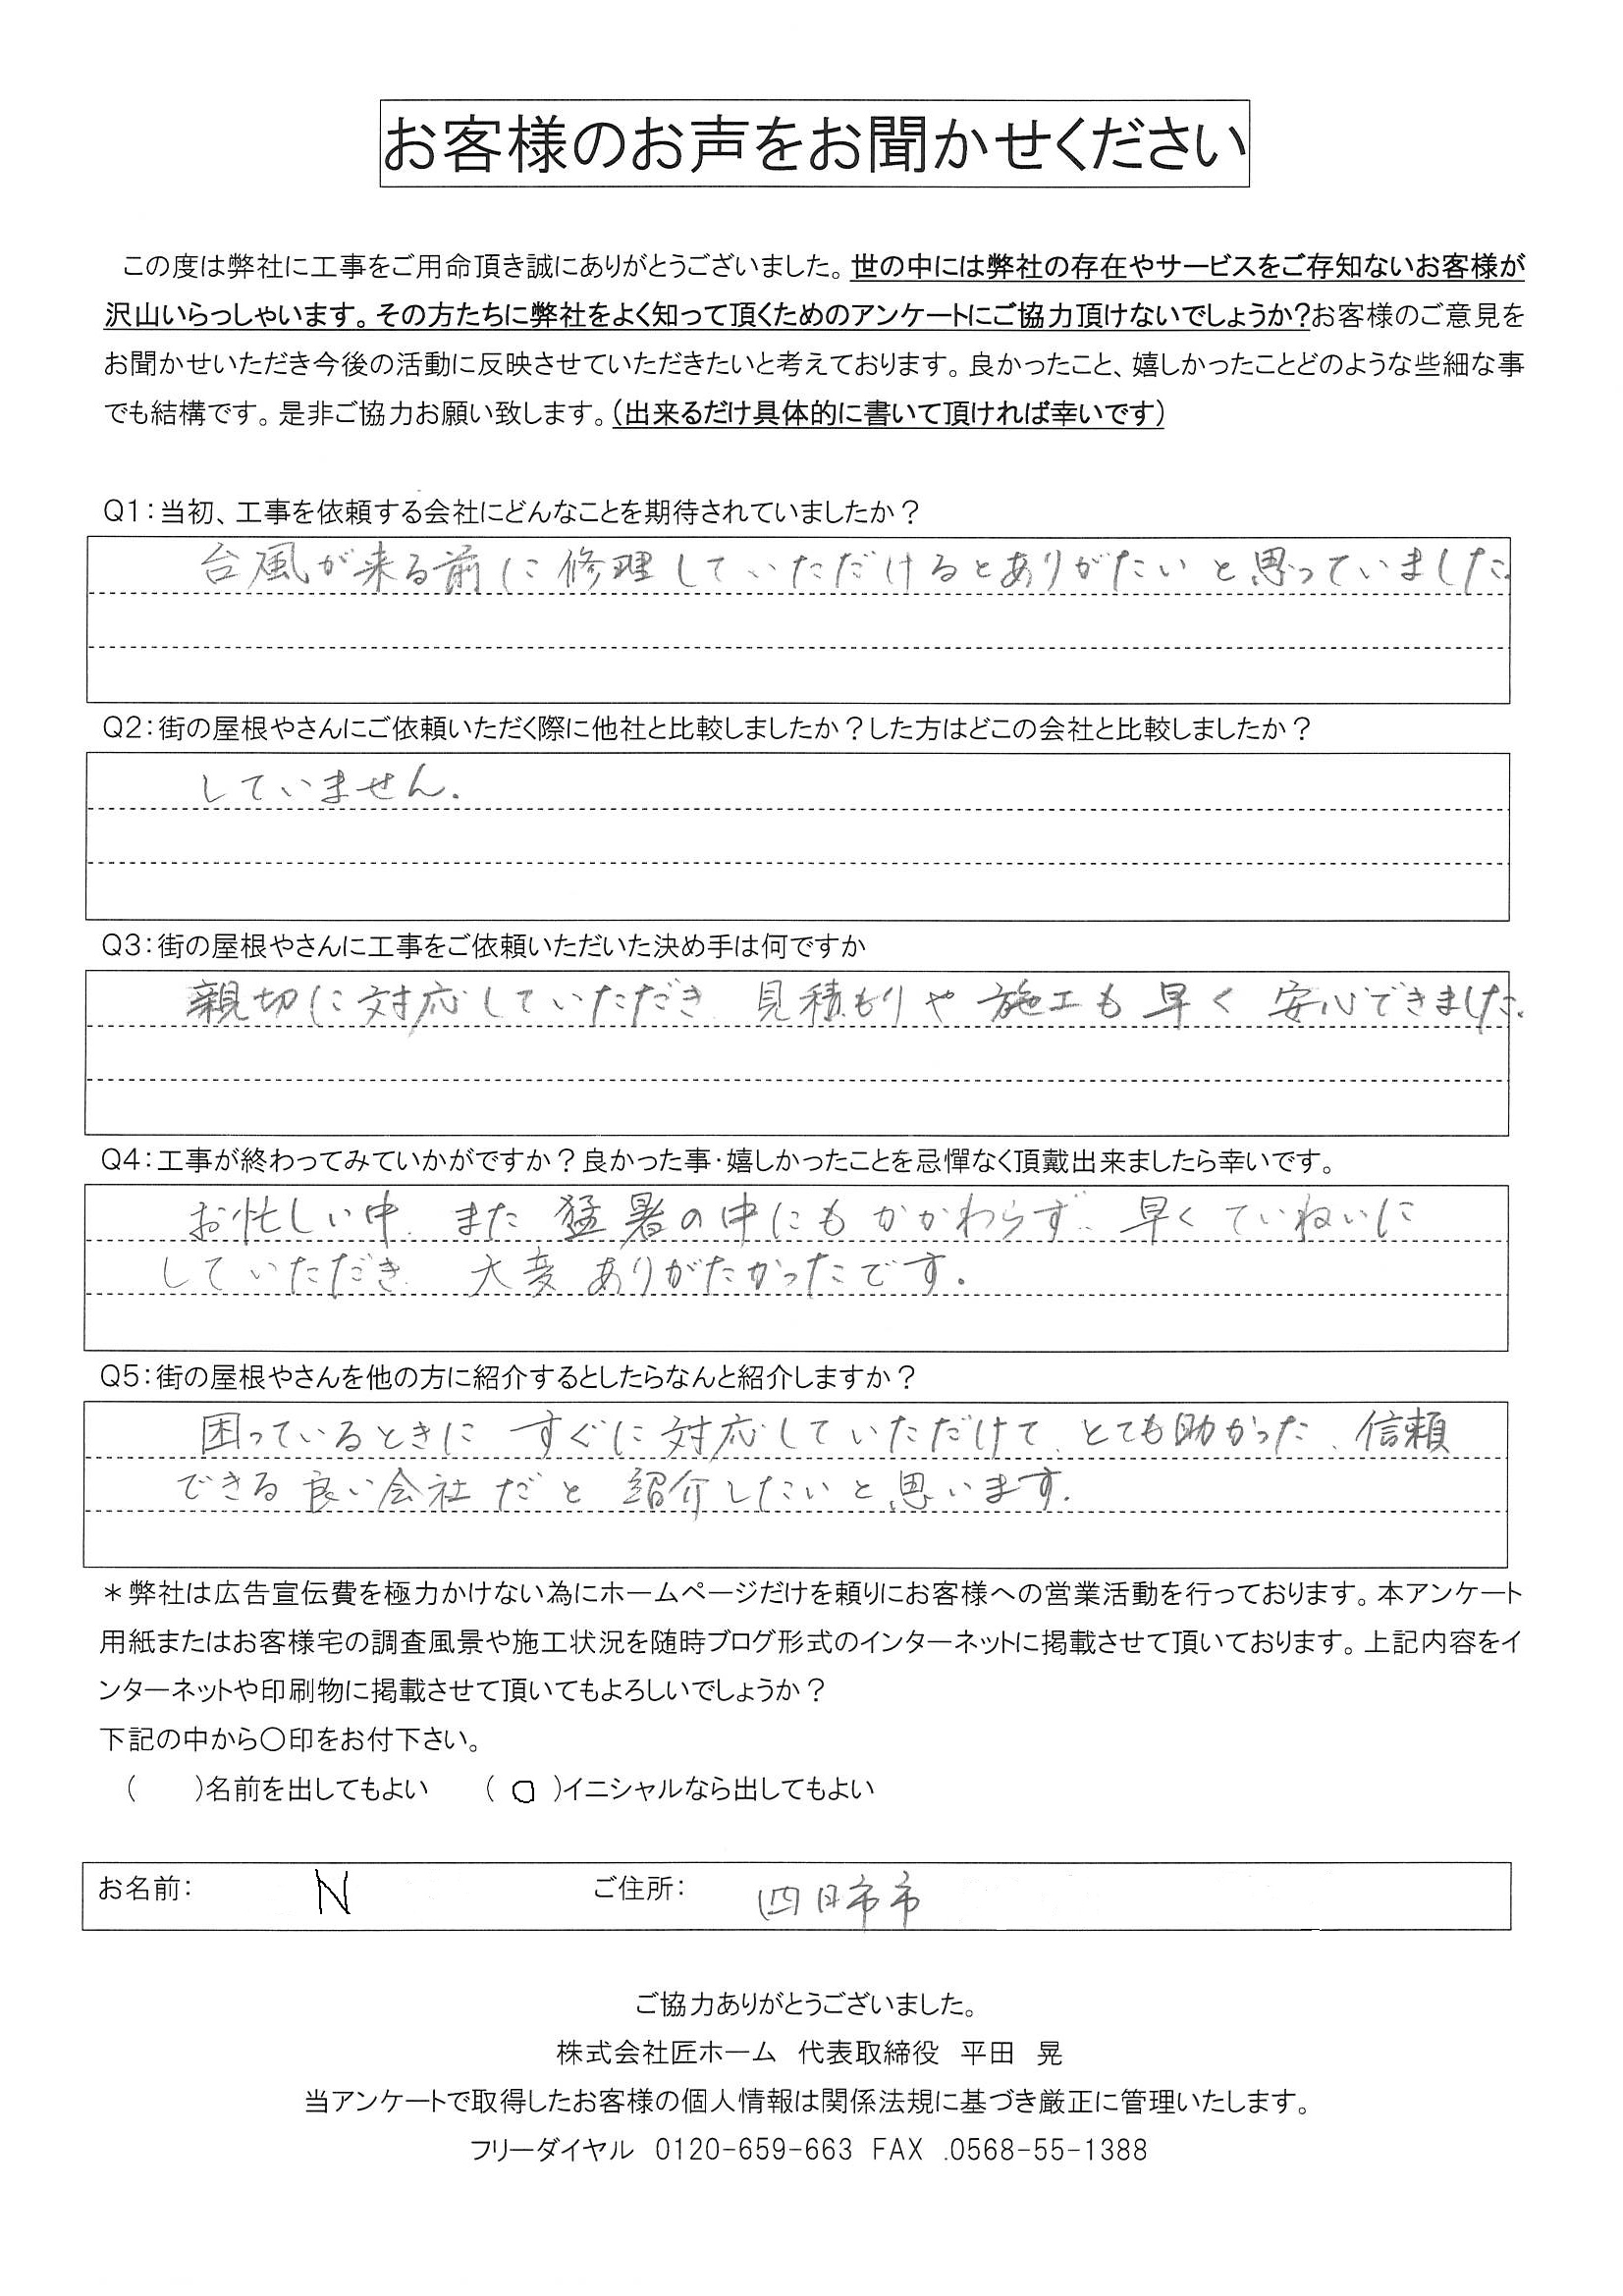 お客様のお声をお聞かせください
この度は弊社に工事をご用命頂き誠にありがとうございました。世の中には弊社の存在やサービスをご存知ないお客様が
沢山いらっしゃいます。その方たちに弊社をよく知って頂くためのアンケートにご協力頂けないでしょうか?お客様のご意見を
お聞かせいただき今後の活動に反映させていただきたいと考えております。良かったこと、嬉しかったことどのような些細な事
でも結構です。是非ご協力お願い致します。(出来るだけ具体的に書いて頂ければ幸いです)
Q1:当初、工事を依頼する会社にどんなことを期待されていましたか?
台風が来る前に修理していただけるとありがたいと思っていました.
Q2:街の屋根やさんにご依頼いただく際に他社と比較しましたか?した方はどこの会社と比較しましたか?
していません.
Q3:街の屋根やさんに工事をご依頼いただいた決め手は何ですか
親切に対応していただき 見積もりや施工も早く 安心できました.
Q4:工事が終わってみていかがですか?良かった事・嬉しかったことを忌憚なく頂戴出来ましたら幸いです。
お忙しい中、また猛暑の中にもかかわらず、早くていねいに
していただき、大変ありがたかったです.
Q5:街の屋根やさんを他の方に紹介するとしたらなんと紹介しますか?
困っているときに すぐに対応していただけて、とても助かった、信頼
できる良い会社だと紹介したいと思います.
*弊社は広告宣伝費を極力かけない為にホームページだけを頼りにお客様への営業活動を行っております。本アンケート
用紙またはお客様宅の調査風景や施工状況を随時ブログ形式のインターネットに掲載させて頂いております。上記内容をイ
ンターネットや印刷物に掲載させて頂いてもよろしいでしょうか?
下記の中から〇印をお付下さい。
( )名前を出してもよい (○)イニシャルなら出してもよい
お名前: N ご住所: 四日市市
ご協力ありがとうございました。
株式会社匠ホーム 代表取締役 平田 晃
当アンケートで取得したお客様の個人情報は関係法規に基づき厳正に管理いたします。
フリーダイヤル 0120-659-663 FAX .0568-55-1388